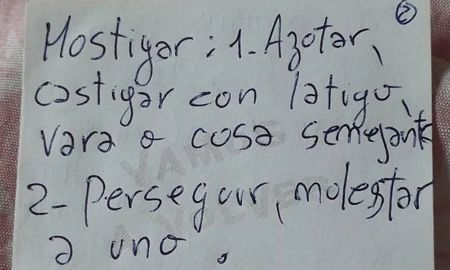 ②
Hostigar: 1-Azotar,
castigar con latigo,
vara o cosa semejante
2-Perseguir, molestar
a uno.
VAMOS
A VOLVER